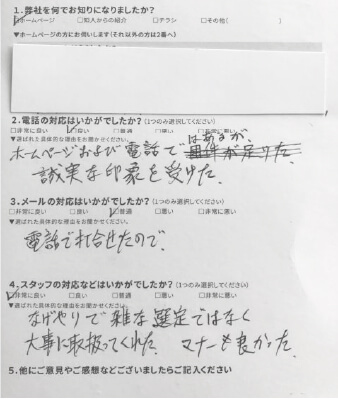 1.弊社を何でお知りになりましたか?
☑ホームページ □知人からの紹介 □チラシ □その他( )
▼ホームページの方にお伺いします(それ以外の方は2番へ)
2.電話の対応はいかがでしたか?(1つのみ選択してください)
□非常に良い ☑良い □普通 □悪い □非常に悪い
▼選ばれた具体的な理由をお聞かせください。
ホームページおよび電話ではあるが、
誠実な印象を受けた。
3.メールの対応はいかがでしたか?(1つのみ選択してください)
□非常に良い □良い ☑普通 □悪い □非常に悪い
▼選ばれた具体的な理由をお聞かせください。
電話で打合せたので、
4.スタッフの対応などはいかがでしたか?(1つのみ選択してください)
☑非常に良い □良い □普通 □悪い □非常に悪い
▼選ばれた具体的な理由をお聞かせください。
なげやりで雑な選定ではなく
大事に取扱ってくれた。マナーも良かった。
5.他にご意見やご感想などございましたらご記入ください